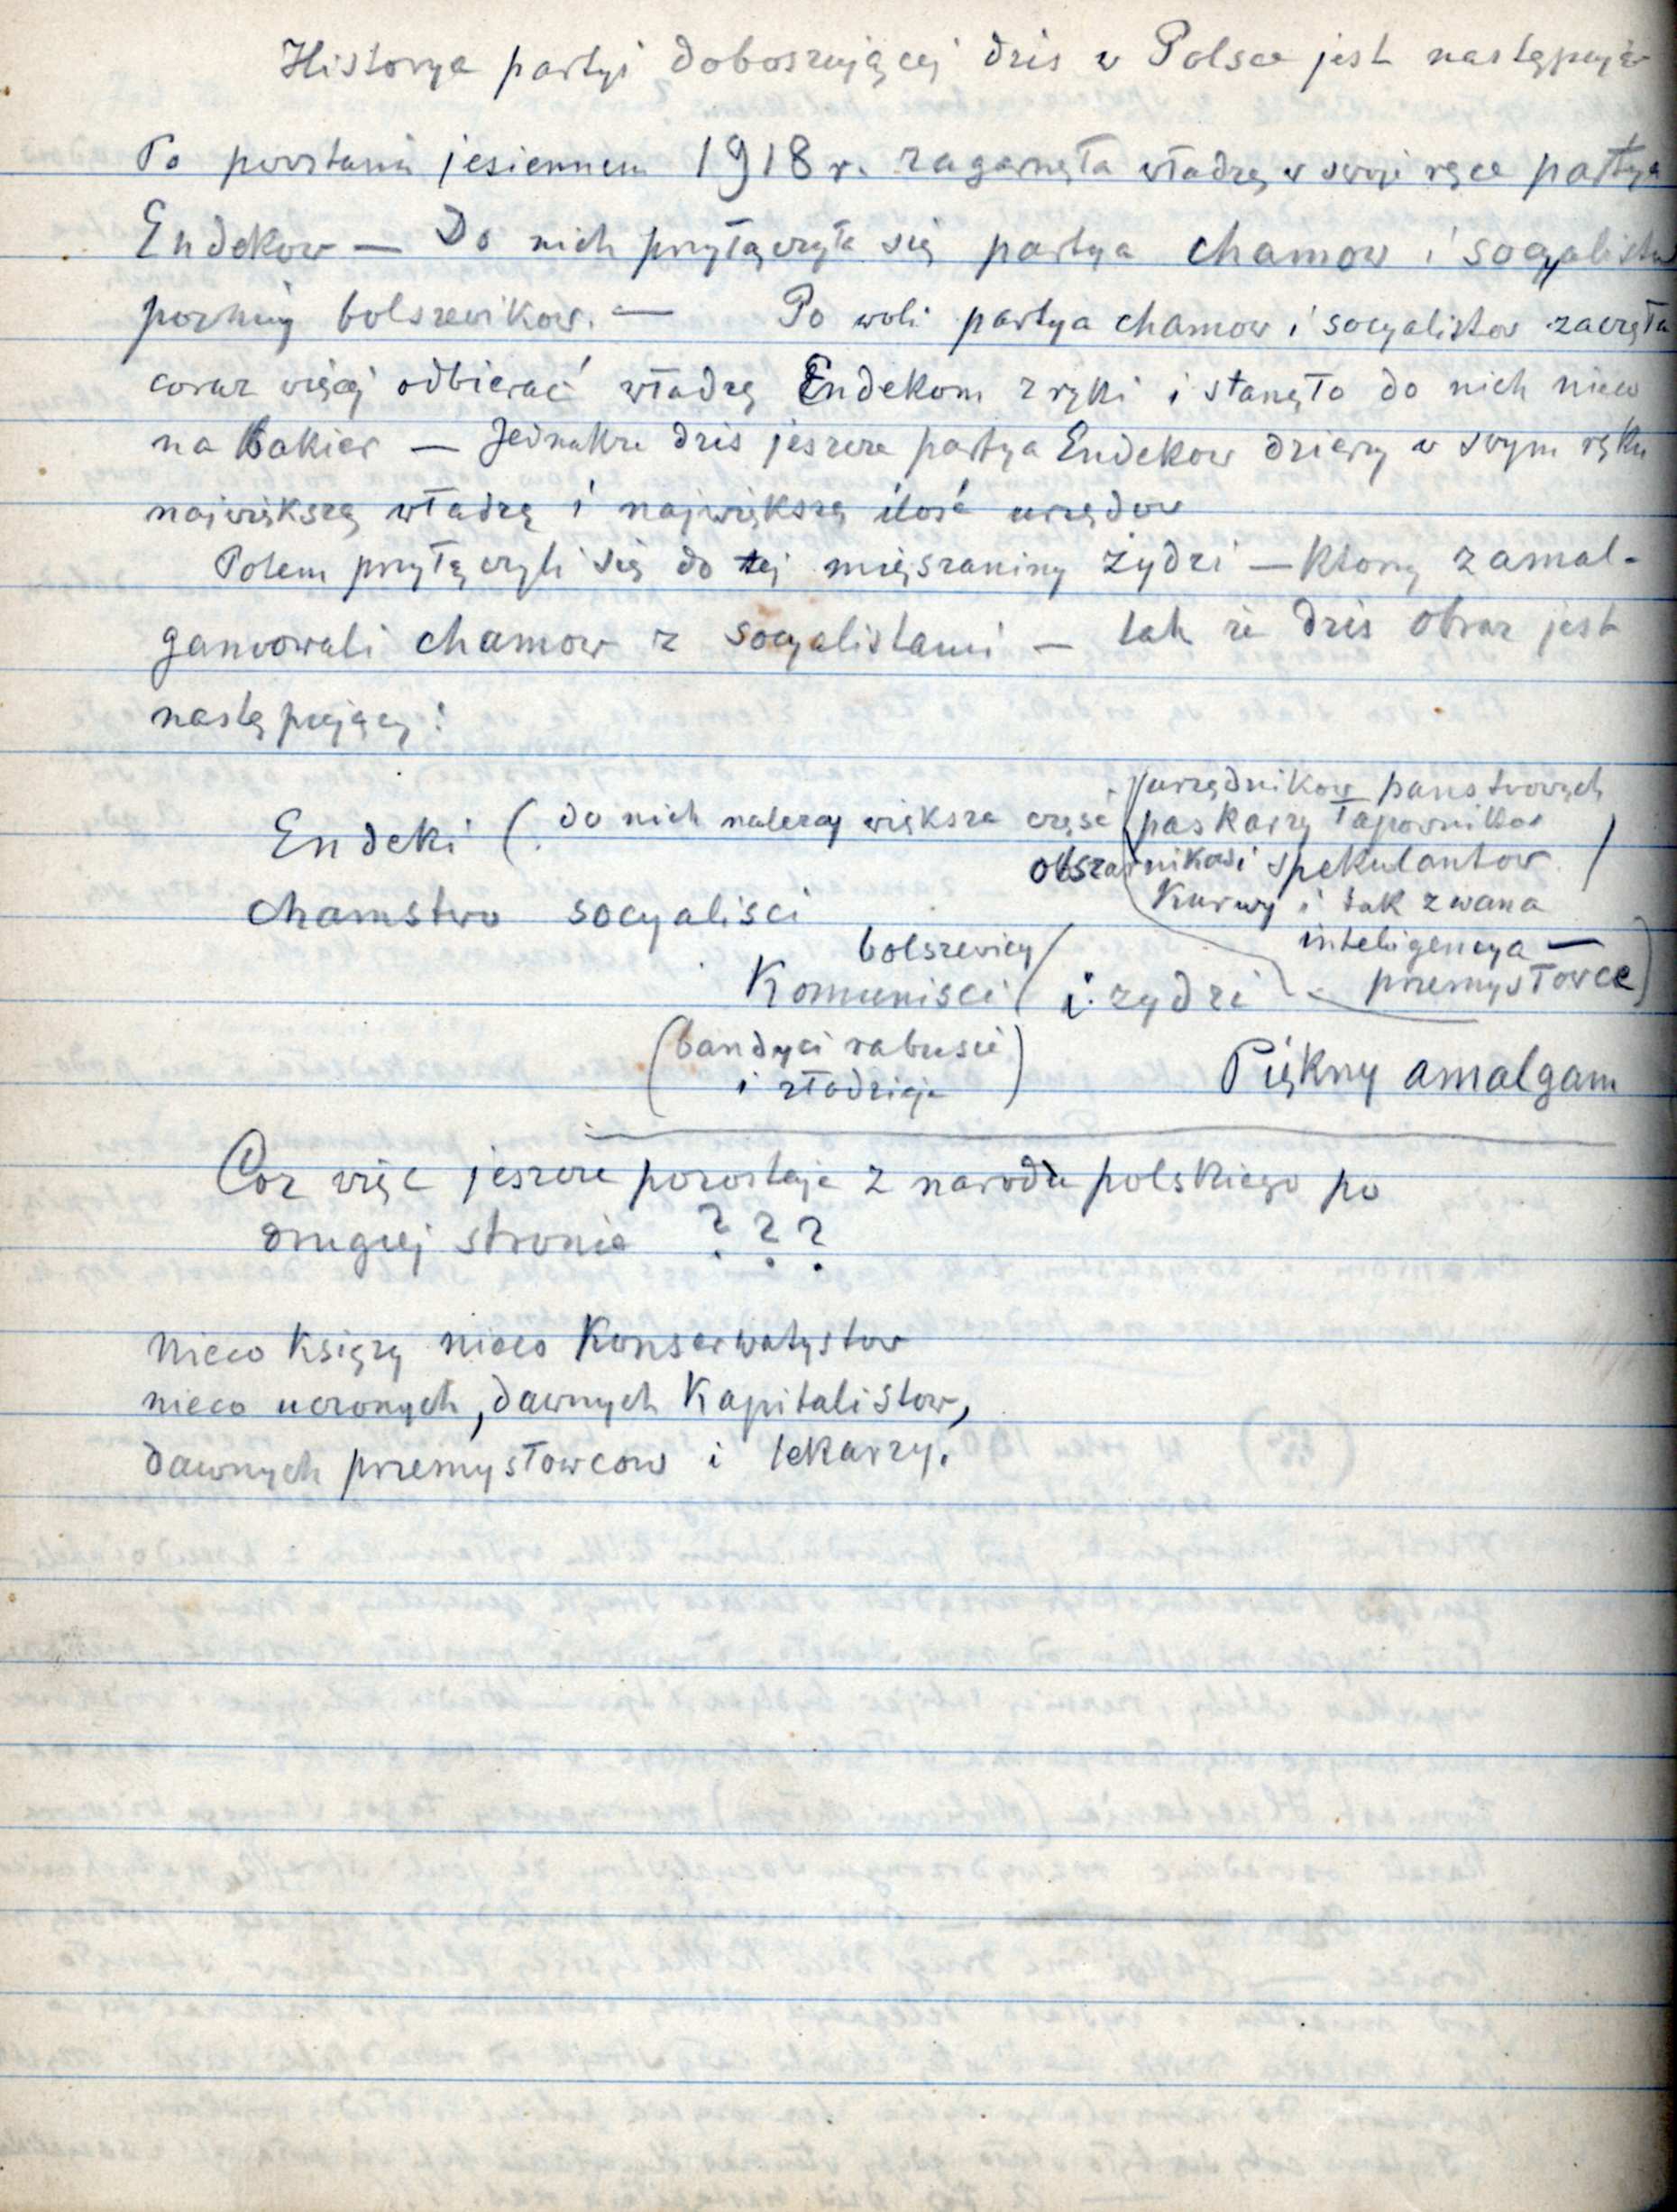 Historya partyi doboszującej dzis w Polsce jest następując
Po powstaniu jesiennem 1918 r. zagarnęła władzę w swoje ręce partya
Endekow — Do nich przyłączyła się partya chamow i socyalistow
pozniej bolszewikow. — Po woli partya chamow i socyalistow zaczęła
coraz więcej odbierać władzę Endekom z ręki i stanęło do nich nieco
na bakier — Jednakze dzis jeszcze partya Endekow dzierzy w swym ręku
największą władzę i największą ilość urzędow
Potem przyłączyli się do tej mięszaniny żydzi — ktorzy zamal-
gamowali chamow z socyalistami — tak ze dzis obraz jest
następujący:
Endeki ( do nich nalezay większa częsc urzędnikow panstwowych
paskarzy łapownikow
obszarnikow i spekulantow )
Kurwy i tak zwana
inteligencya —
przemysłowce )
chamstwo socyalisci
bolszewicy
Komunisci ( i zydzi
(bandyci rabusie
i złodzieje )
Piękny amalgam
Coz więc jeszcze pozostaje z narodu polskiego po
drugiej stronie ? ? ?
nieco księzy nieco Konserwatystow
nieco uczonych, dawnych Kapitalistow,
dawnych przemysłowcow i lekarzy.